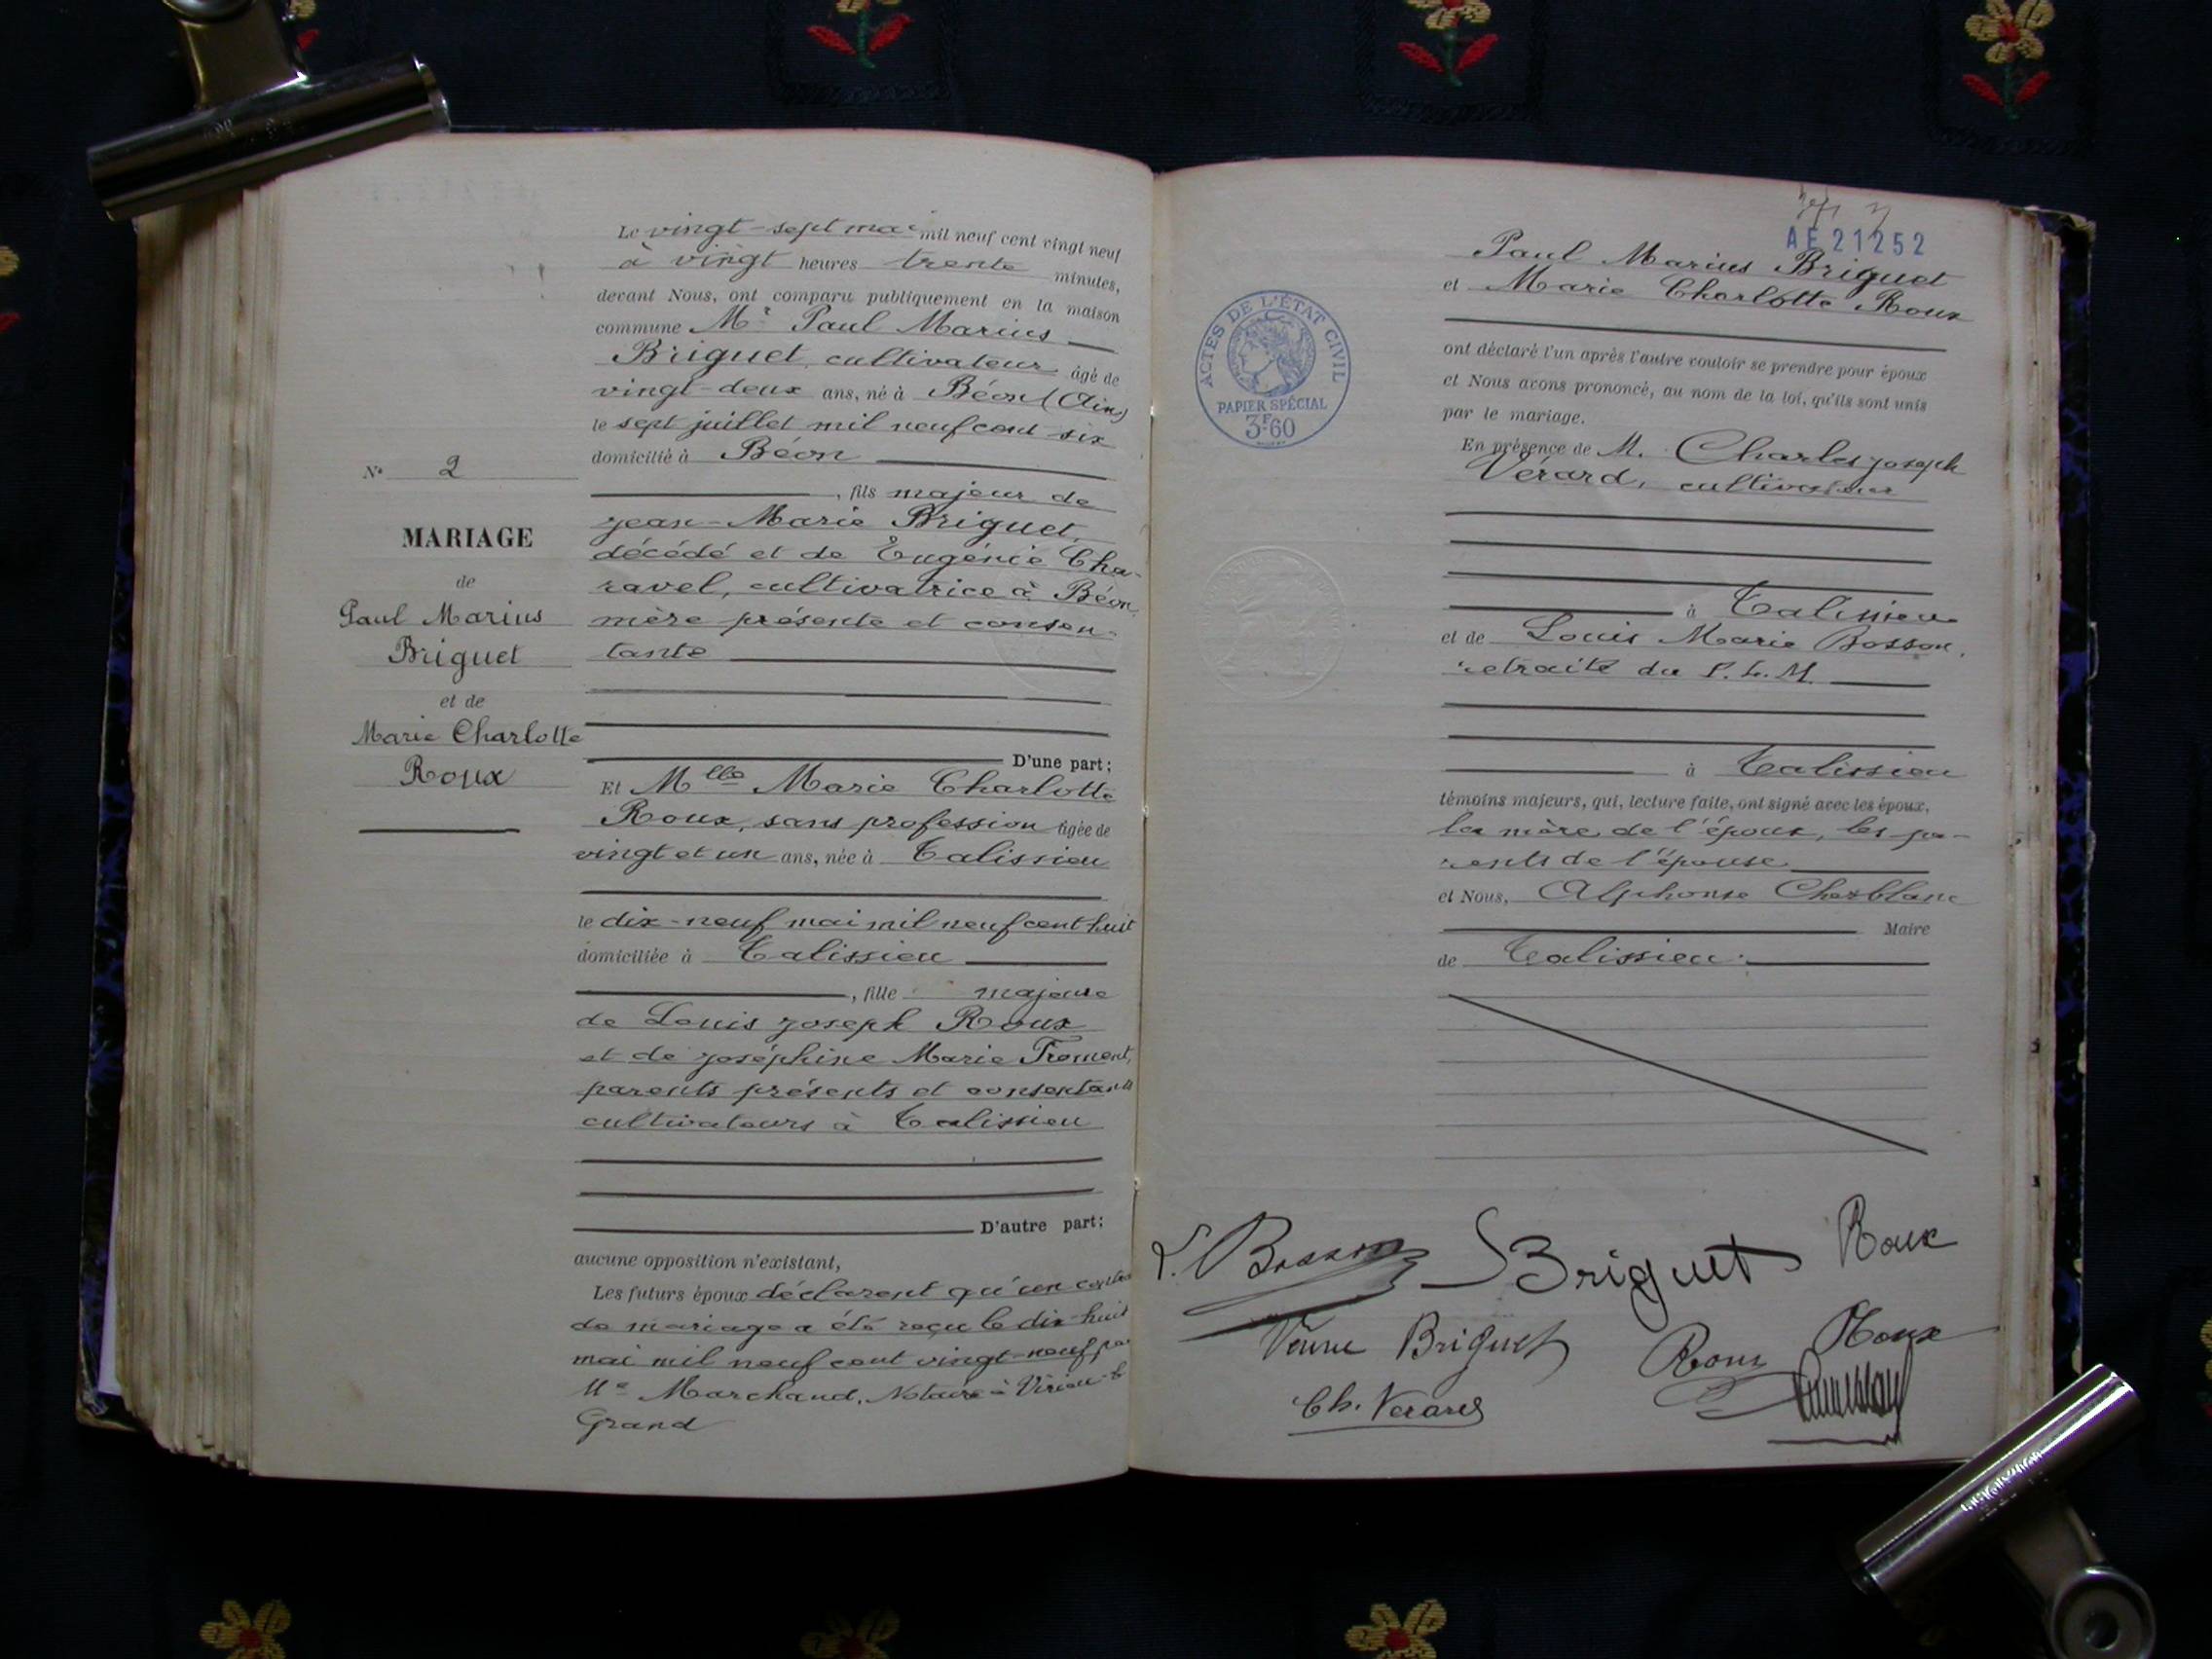 N° 2
MARIAGE
de
Paul Marius
Briguet
et de
Marie Charlotte
Roux
Le vingt-sept mai mil neuf cent vingt neuf
à vingt heures trente minutes,
devant Nous, ont comparu publiquement en la maison
commune Mr Paul Marius
Briguet, cultivateur âgé de
vingt-deux ans, né à Béon (Ain)
le sept juillet mil neuf cent six
domicilié à Béon
, fils majeur de
Jean-Marie Briguet,
décédé et de Eugénie Cha-
ravel, cultivatrice à Béon
mère présente et consen-
tante
D'une part;
Et Mlle Marie Charlotte
Roux, sans profession âgée de
vingt et un ans, née à Talissieu
le dix-neuf mai mil neuf cent huit
domiciliée à Talissieu
, fille majeure
de Louis Joseph Roux
et de Joséphine Marie Froment,
parents présents et consentants
cultivateurs à Talissieu
D'autre part;
aucune opposition n'existant,
Les futurs époux déclarent qu'un contrat
de mariage a été reçu le dix-huit
mai mil neuf cent vingt-neuf par
Me Marchand, Notaire à Virieu-le
Grand
AE21252
Paul Marius Briguet
et Marie Charlotte Roux
ACTES DE L'ÉTAT CIVIL
PAPIER SPÉCIAL
3F60
ont déclaré l'un après l'autre vouloir se prendre pour époux
et Nous avons prononcé, au nom de la loi, qu'ils sont unis
par le mariage.
En présence de M. Charles Joseph
Vérard, cultivateur
à Talissieu
et de Louis Marie Bosson,
retraité du P.L.M.
à Talissieu
témoins majeurs, qui, lecture faite, ont signé avec les époux,
la mère de l'époux, les pa-
rents de l'épouse
et Nous, Alphonse Cherblanc
Maire
de Talissieu.
L. Bosson Briguet Roux
Veuve Briguet Roux Roux
Ch. Verard